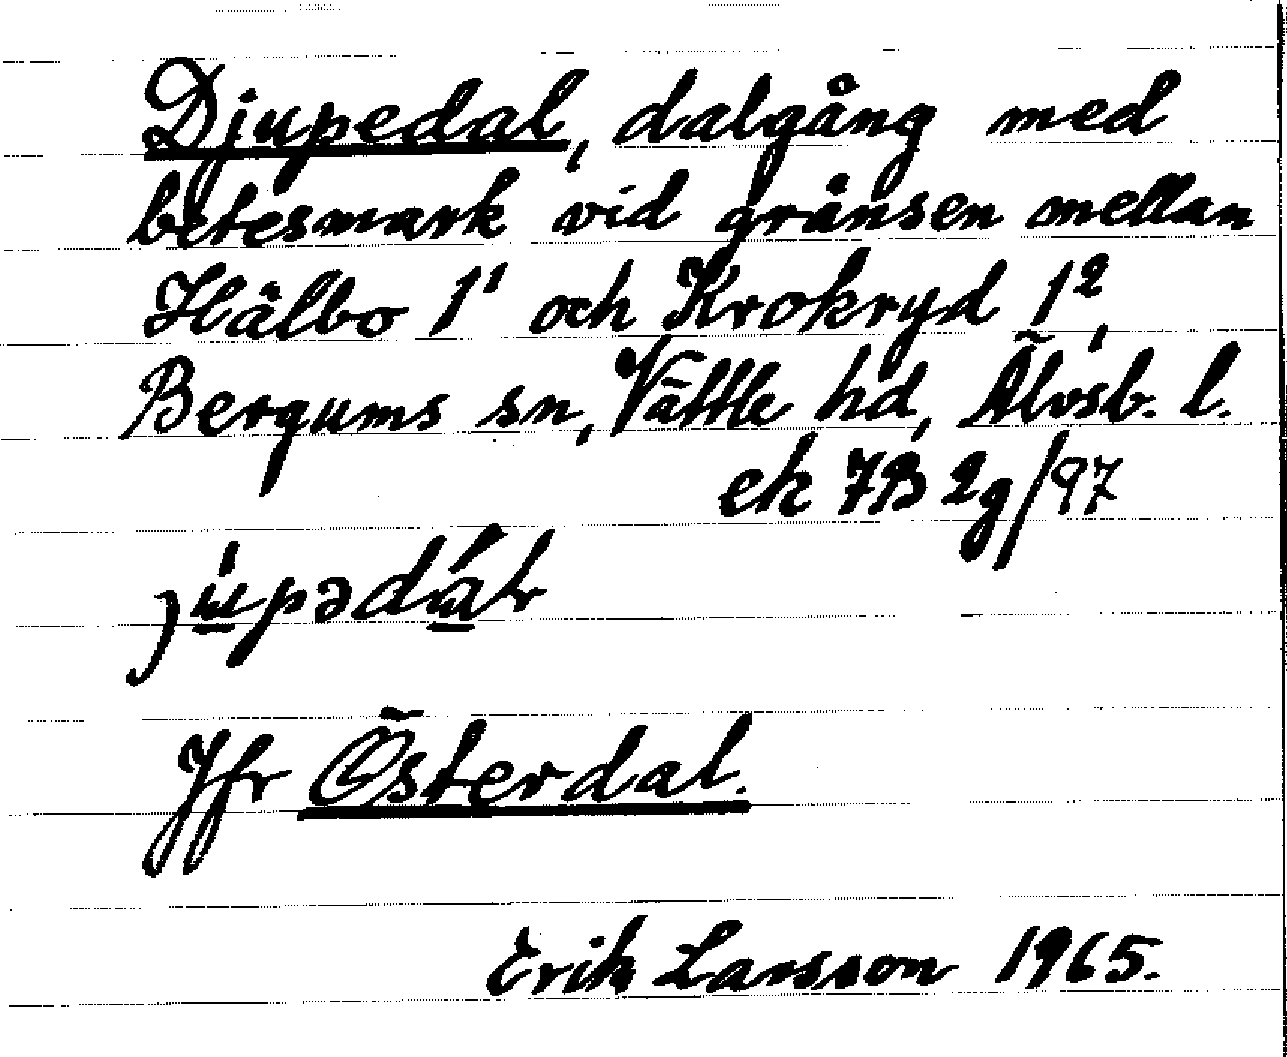 Djupedal, dalgång med
betesmark vid gränsen mellan
Hälbo 1¹ och Krokryd 1²,
Bergums sn, Vättle hd, Älvsb. l.
ek 7B 2g/97
Jfr Österdal.
Erik Larsson 1965.